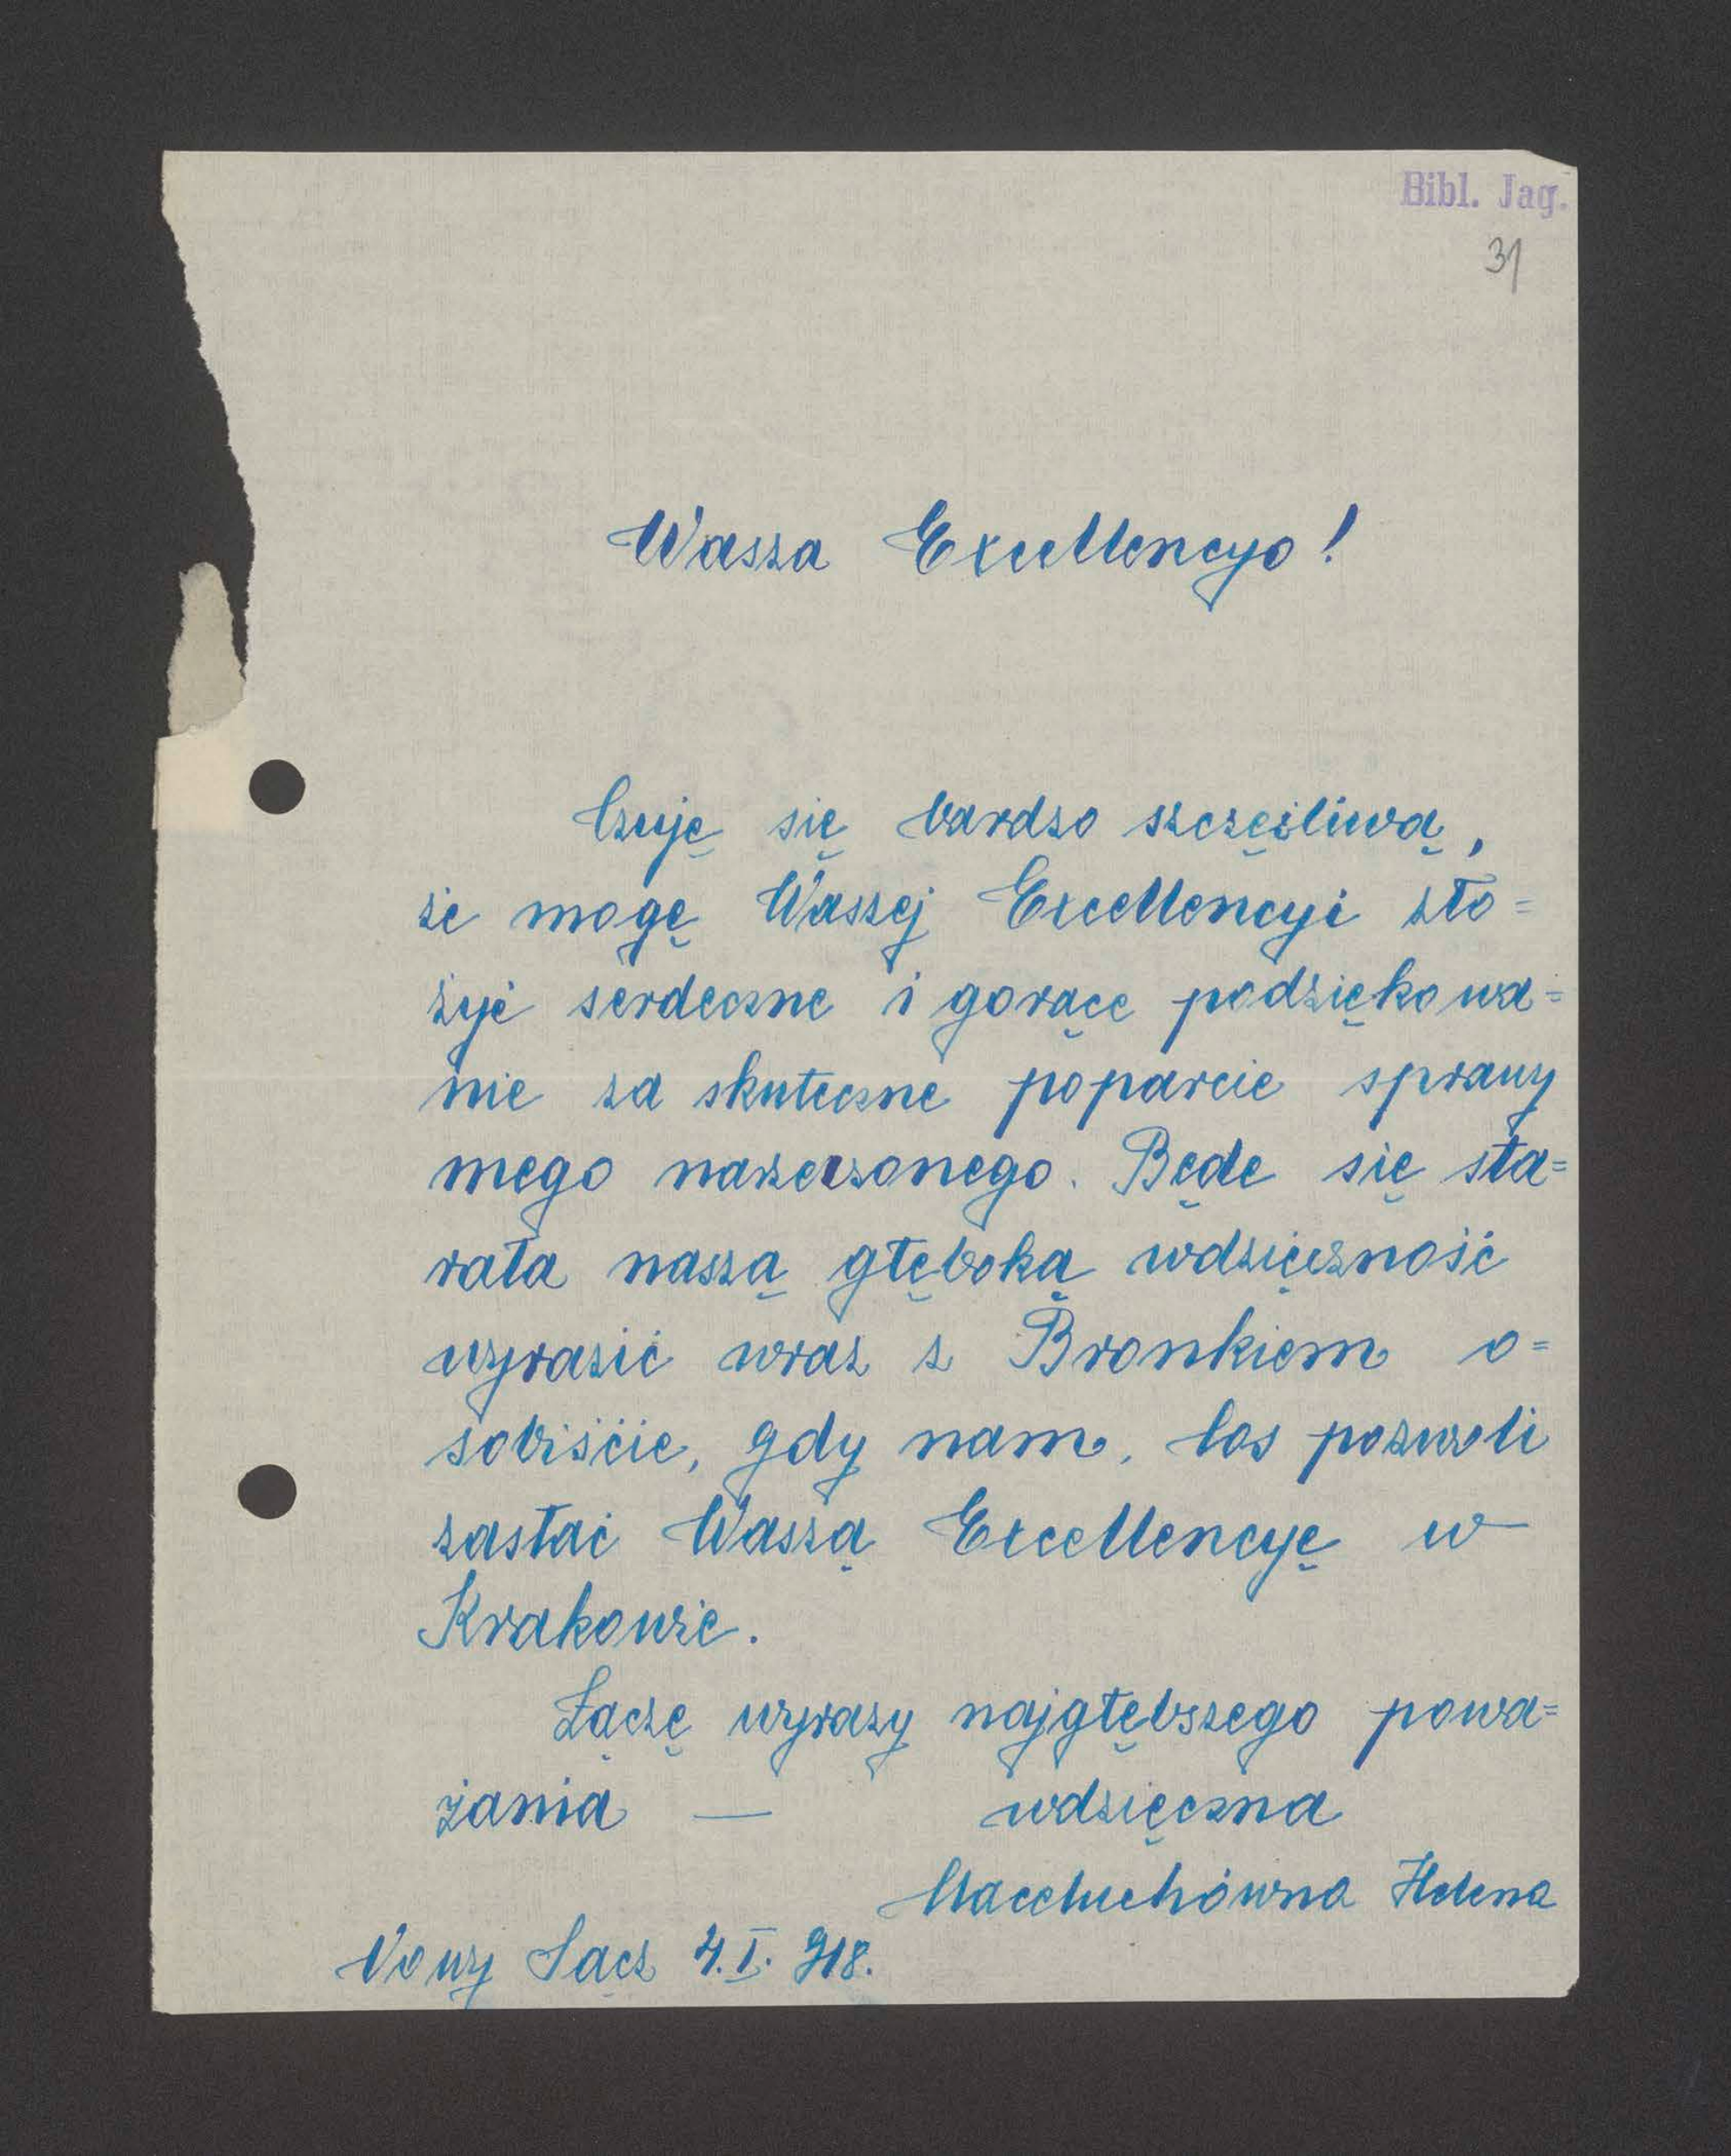 Bibl. Jag.
31
Wasza Excellencyo!
Czuję się bardzo szczęśliwą,
że mogę Waszej Excellencyi zło=
żyć serdeczne i gorące podziękowa=
nie za skuteczne poparcie sprawy
mego narzeczonego. Będe się sta=
rała naszą głęboką wdzięczność
wyrazić wraz z Bronkiem o=
sobiście, gdy nam, los pozwoli
zastać Waszą Excellencyę w
Krakowie.
Łączę wyrazy najgłębszego powa=
żania — wdzięczna
Helena
Nowy Sącz 4.I. 918.